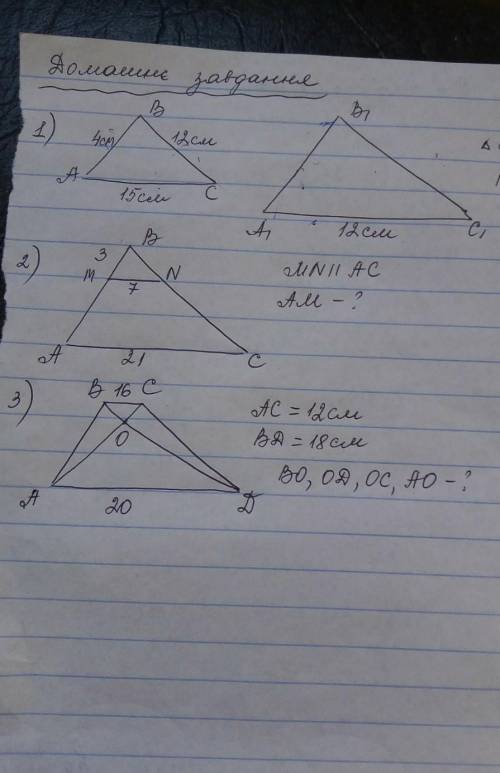 Домашнє завдання
1)
B
4см
12см
A
15см
C
B₁
A₁
12см
C₁
2)
B
3
M
N
7
A
21
C
MN || AC
AM - ?
3)
B 16 C
O
A
20
D
AC = 12см
BD = 18см
BO, OD, OC, AO - ?